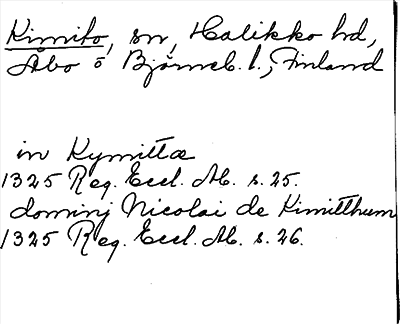 Kimito, sn, Halikko hd,
Åbo o. Björneb. l., Finland
in Kymittæ
1325 Reg. Eccl. Ab. s. 25.
dominj Nicolai de Kimitthum
1325 Reg. Eccl. Ab. s. 26.